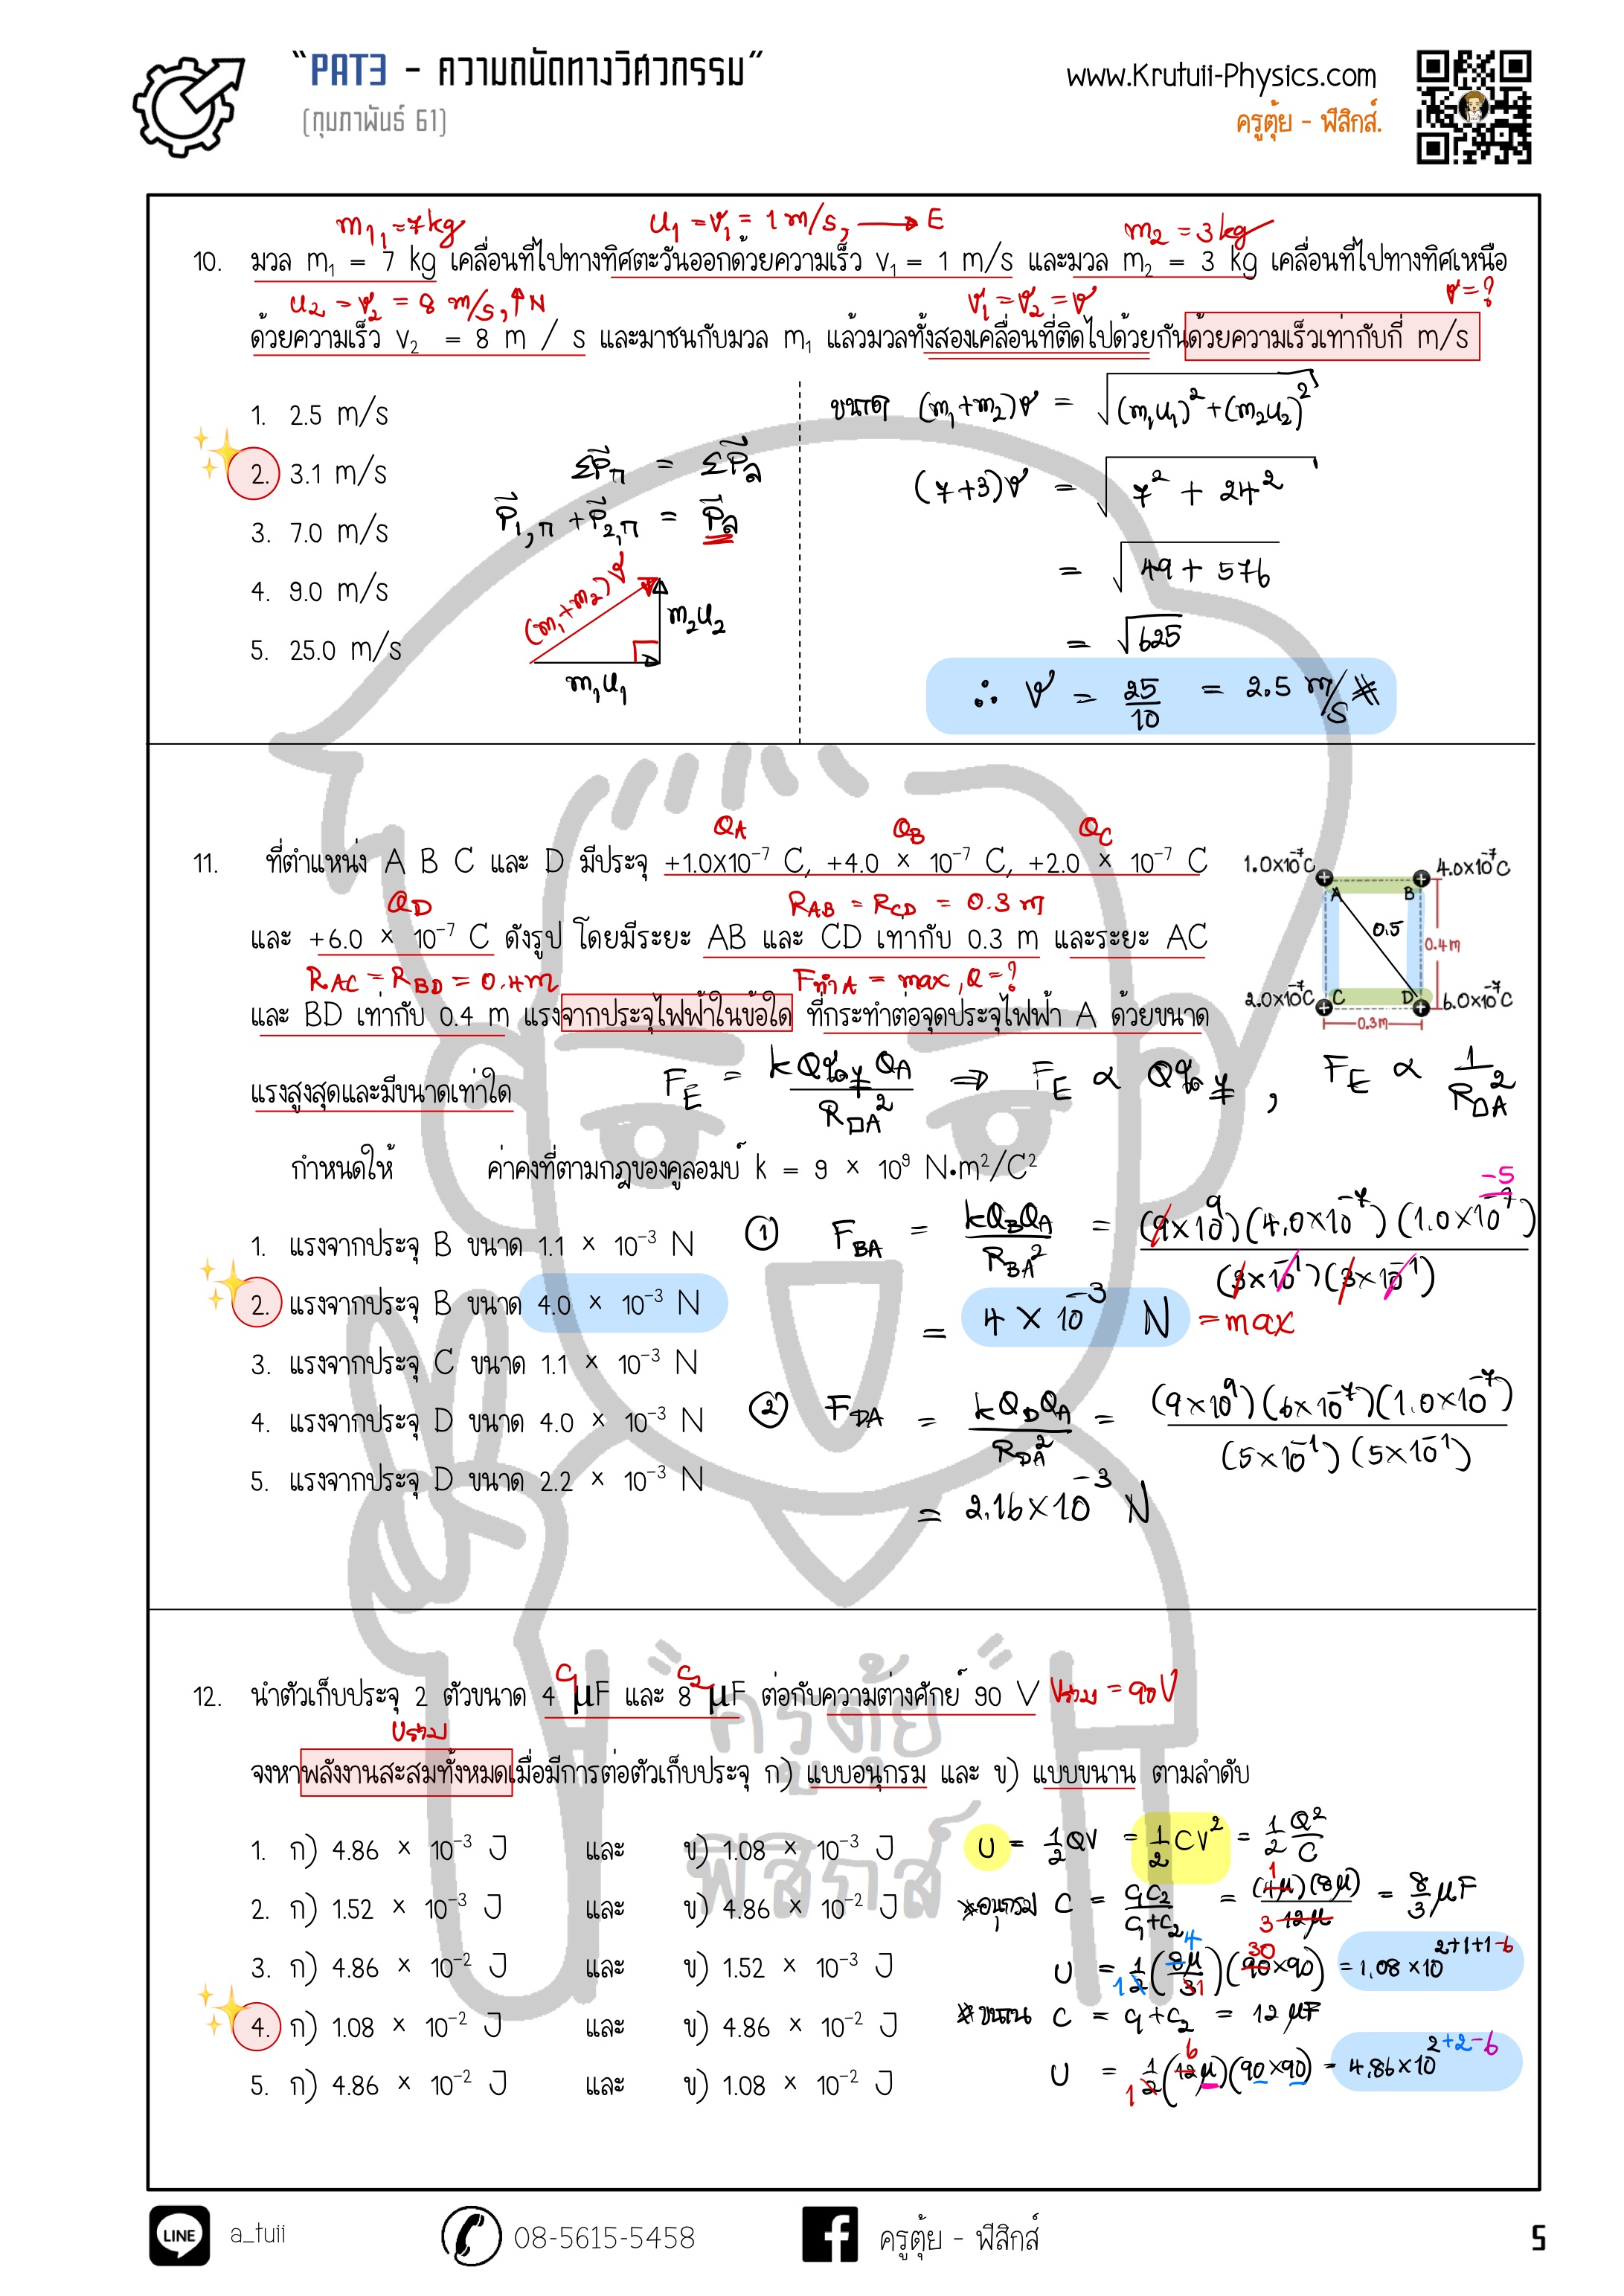 "PAT3 - ความถนัดทางวิศวกรรม"
(กุมภาพันธ์ 61)
www.Krutuii-Physics.com
ครูตุ้ย - ฟิสิกส์.
m₁₁ = 7 kg
u₁ = v₁ = 1 m/s, ⟶ E
m₂ = 3 kg
10. มวล m₁ = 7 kg เคลื่อนที่ไปทางทิศตะวันออกด้วยความเร็ว v₁ = 1 m/s และมวล m₂ = 3 kg เคลื่อนที่ไปทางทิศเหนือ
u₂ = v₂ = 8 m/s, ↑N
v₁ = v₂ = v
v = ?
ด้วยความเร็ว v₂ = 8 m / s และมาชนกับมวล m₁ แล้วมวลทั้งสองเคลื่อนที่ติดไปด้วยกันด้วยความเร็วเท่ากับกี่ m/s
1. 2.5 m/s
2. 3.1 m/s
3. 7.0 m/s
4. 9.0 m/s
5. 25.0 m/s
ΣP⃗ก = ΣP⃗ล
P⃗₁,ก + P⃗₂,ก = P⃗ล
(m₁+m₂)v
m₂u₂
m₁u₁
ขนาด (m₁+m₂)v = √((m₁u₁)² + (m₂u₂)²)
(7+3)v = √(7² + 24²)
= √(49 + 576)
= √625
∴ v = 25/10 = 2.5 m/s #
Q_A Q_B Q_C
11. ที่ตำแหน่ง A B C และ D มีประจุ +1.0X10⁻⁷ C, +4.0 × 10⁻⁷ C, +2.0 × 10⁻⁷ C
Q_D
R_AB = R_CD = 0.3 m
และ +6.0 × 10⁻⁷ C ดังรูป โดยมีระยะ AB และ CD เท่ากับ 0.3 m และระยะ AC
R_AC = R_BD = 0.4 m
FทำA = max, Q = ?
และ BD เท่ากับ 0.4 m แรงจากประจุไฟฟ้าในข้อใด ที่กระทำต่อจุดประจุไฟฟ้า A ด้วยขนาด
แรงสูงสุดและมีขนาดเท่าใด
1.0x10⁻⁷C
4.0x10⁻⁷C
A B
0.5
0.4m
2.0x10⁻⁷C
C D
6.0x10⁻⁷C
0.3m
กำหนดให้ ค่าคงที่ตามกฎของคูลอมบ์ k = 9 × 10⁹ N•m²/C²
1. แรงจากประจุ B ขนาด 1.1 × 10⁻³ N
2. แรงจากประจุ B ขนาด 4.0 × 10⁻³ N
3. แรงจากประจุ C ขนาด 1.1 × 10⁻³ N
4. แรงจากประจุ D ขนาด 4.0 × 10⁻³ N
5. แรงจากประจุ D ขนาด 2.2 × 10⁻³ N
-5
① F_BA = kQ_BQ_A/R_BA² = (9x10⁹)(4.0x10⁻⁷)(1.0x10⁻⁷)/(3x10⁻¹)(3x10⁻¹)
= 4 x 10⁻³ N = max
② F_DA = kQ_DQ_A/R_DA² = (9x10⁹)(6x10⁻⁷)(1.0x10⁻⁷)/(5x10⁻¹)(5x10⁻¹)
= 2.16x10⁻³ N
C₁ C₂
12. นำตัวเก็บประจุ 2 ตัวขนาด 4 μF และ 8 μF ต่อกับความต่างศักย์ 90 V Vรวม = 90V
Uรวม
จงหาพลังงานสะสมทั้งหมดเมื่อมีการต่อตัวเก็บประจุ ก) แบบอนุกรม และ ข) แบบขนาน ตามลำดับ
1. ก) 4.86 × 10⁻³ J และ ข) 1.08 × 10⁻³ J
2. ก) 1.52 × 10⁻³ J และ ข) 4.86 × 10⁻² J
3. ก) 4.86 × 10⁻² J และ ข) 1.52 × 10⁻³ J
4. ก) 1.08 × 10⁻² J และ ข) 4.86 × 10⁻² J
5. ก) 4.86 × 10⁻² J และ ข) 1.08 × 10⁻² J
U = 1/2 QV = 1/2 CV² = 1/2 Q²/C
*อนุกรม C = C₁C₂/C₁+C₂ = (4μ)(8μ)/12μ = 8/3 μF
U = 1/2 (8μ/3)(90x90) = 1.08x10²⁺¹⁺¹⁻⁶
*ขนาน C = C₁+C₂ = 12 μF
U = 1/2 (12μ)(90x90) = 4.86x10²⁺²⁻⁶
"ครูตุ้ย"
ฟิสิกส์
LINE a_tuii
08-5615-5458
ครูตุ้ย - ฟิสิกส์
5